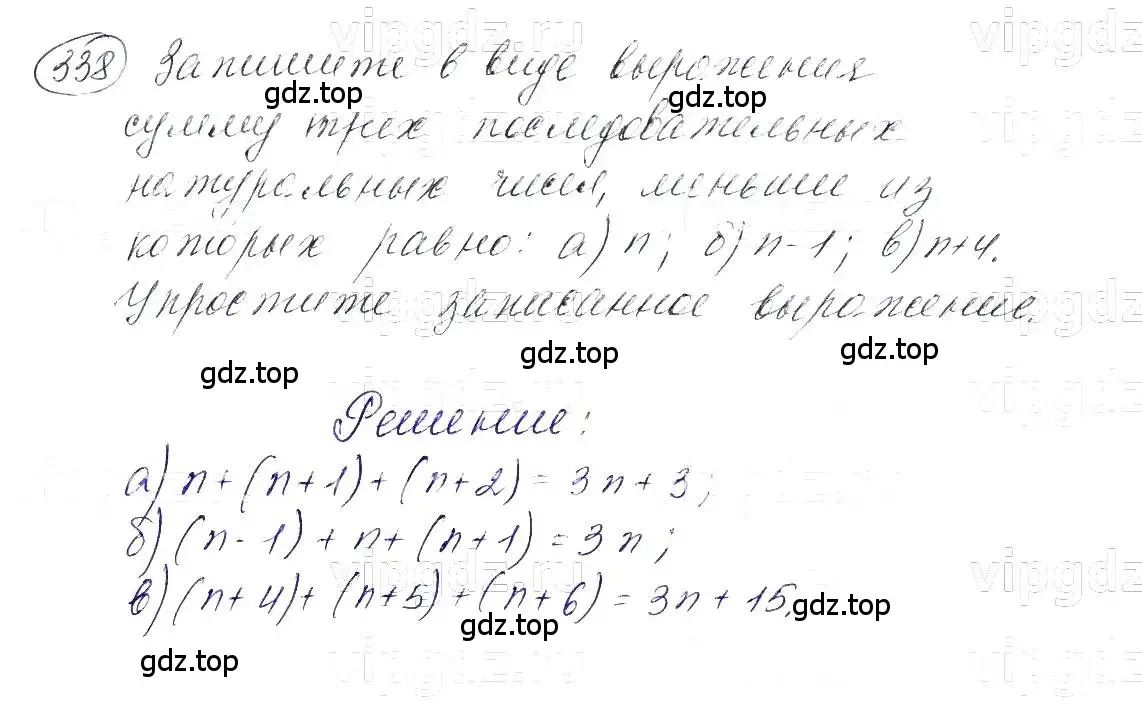 vipgdz.ru
338 Запишите в виде выражения
gdz.top gdz.top
сумму трех последовательных
натуральных чисел, меньшее из
которых равно: а) n; б) n-1; в) n+4.
Упростите записанное выражение.
gdz.top gdz.top
gdz.top
Решение:
а) n+(n+1)+(n+2)=3n+3;
б) (n-1)+n+(n+1)=3n;
в) (n+4)+(n+5)+(n+6)=3n+15.
gdz.top
gdz.top
gdz.top